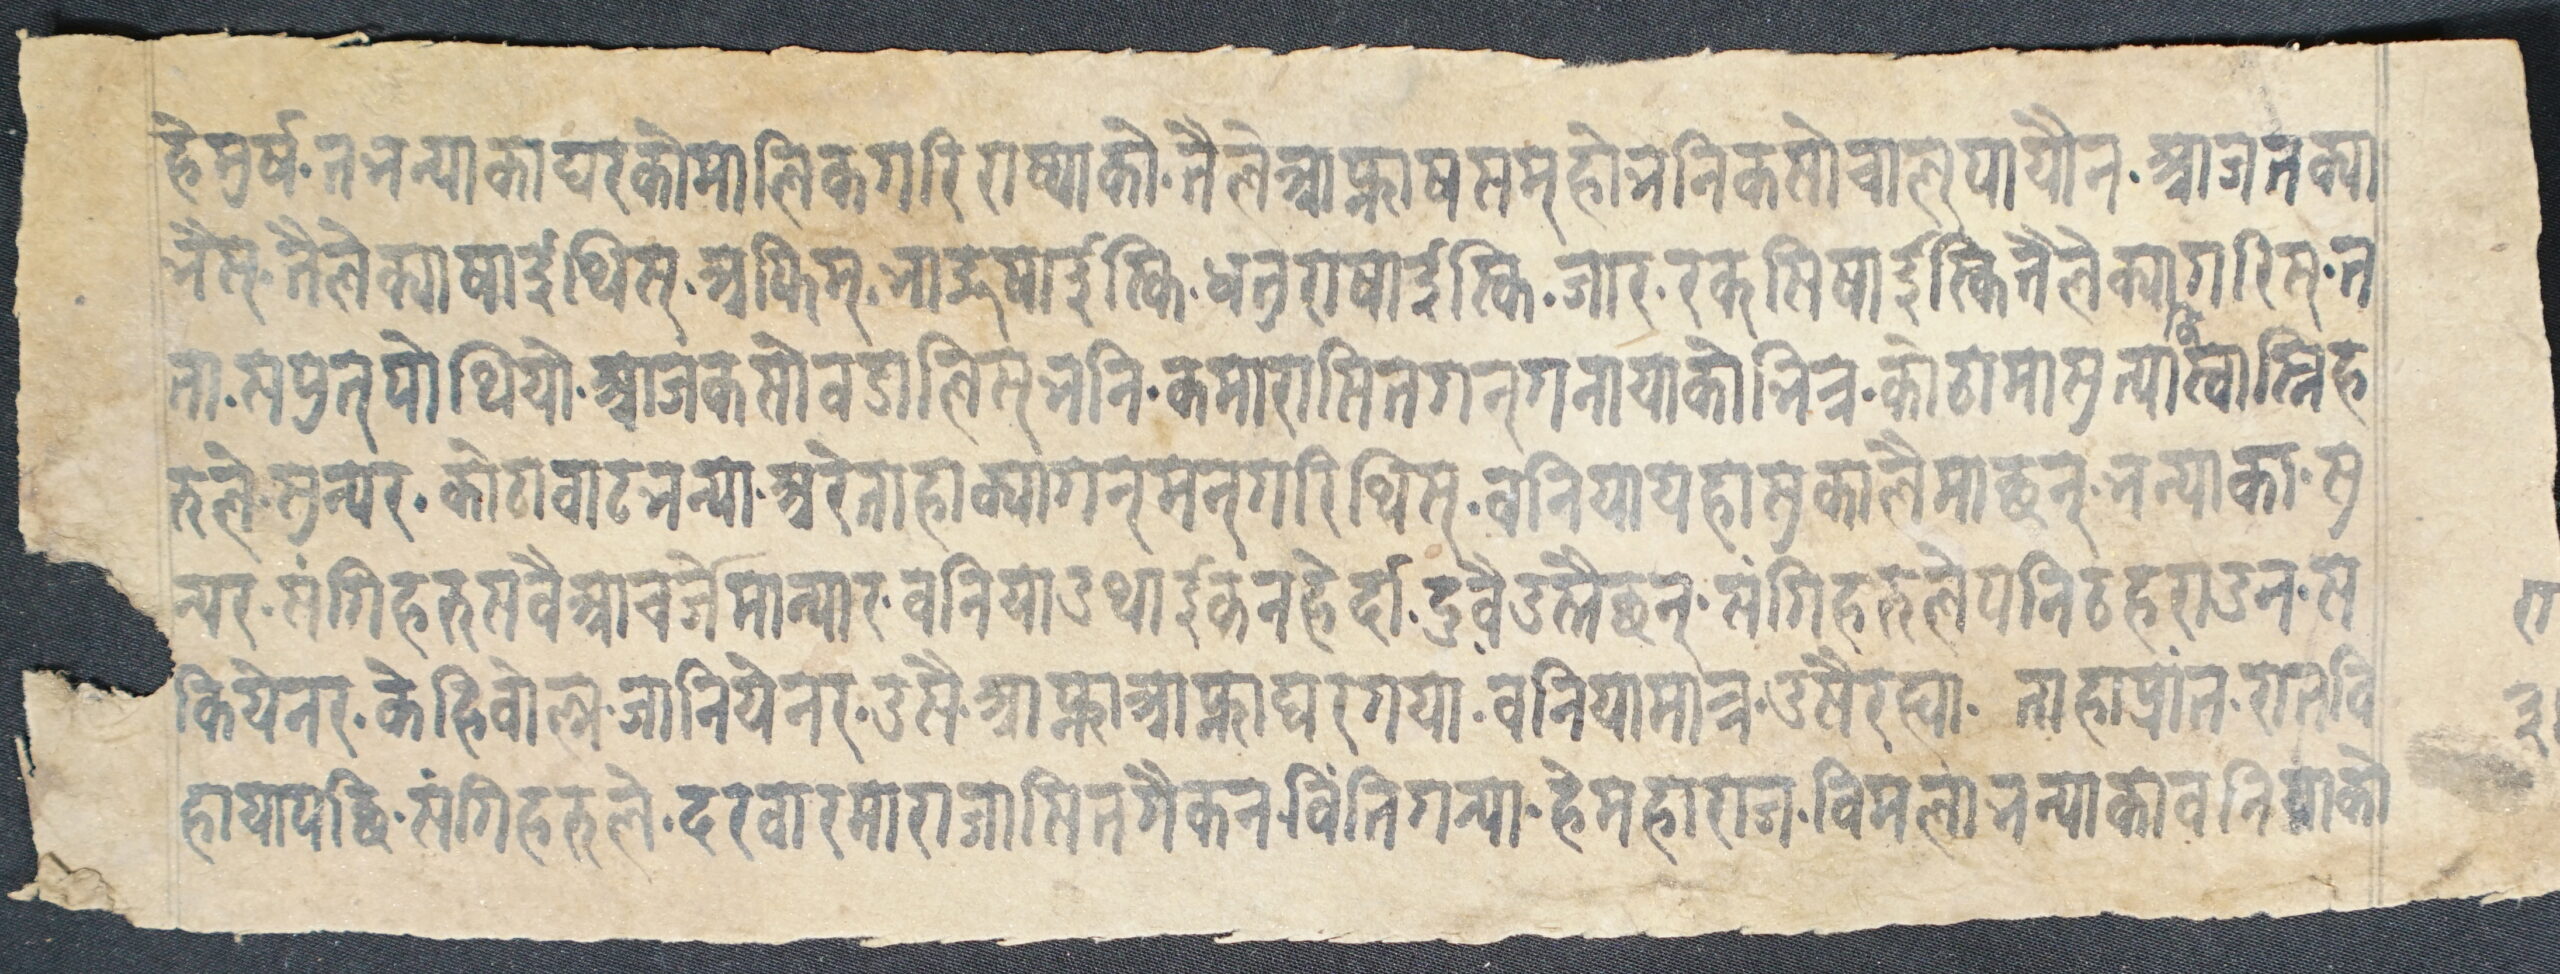 हेमुर्ष· तभन्याका घरको मालिक गरि राष्याको· तैले आफ्ना षसम् हो भनि कसो चाल् पायौन· आज त क्या
भैस्· तैले क्या षाई थिस्· अफिम्· भाङ् षाईस्कि· धतुरा षाईस्कि· जार· रक्सि षाईस्कि तैले क्या गरिस्· त
ता· सपुत् पो थियो· आज कसो वडालिस् भनि· कमारा सित गन्गनायाको भित्र· कोठामा सुत्या कि स्वास्निह
रुले· सुन्यर· कोठावाट भन्या· अरे ताहा क्या गन्मन् गरि थिस्· वनिया यहा सुकालै माछन्· भन्याका· सु
न्यर· संगिहरु सवै आचर्जे मान्यार· वनिया उथाईकन हेर्दा· दुवै उस्तै छन्· संगिहरुले पनि ठहराउन· स
कियेनर· केहि वोल्न· जानियेनर· उसै· आफ्ना आफ्ना घर गया· वनिया मात्र· उसै रह्या· ताहा प्रांत· रात वि
हाया पछि· संगिहरुले· दरवारमा राजा सित गैकन· विंति गन्या· हे महाराज· विमला भन्याका वनियाको